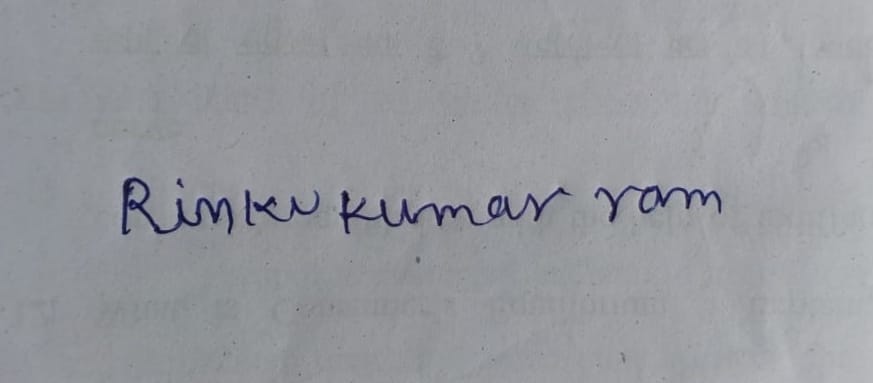 Rinku kumar ram